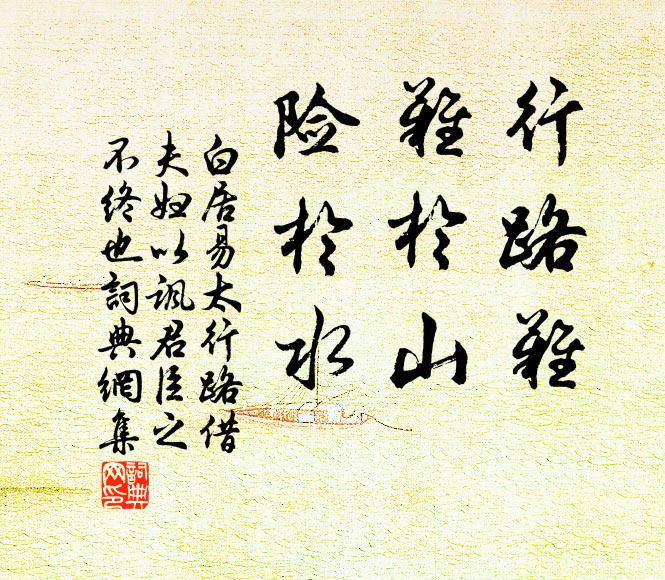 行路难
难於山
险於水
白居易太行路借
夫妇以讽君臣之
不终也詞典網集
詞典网印